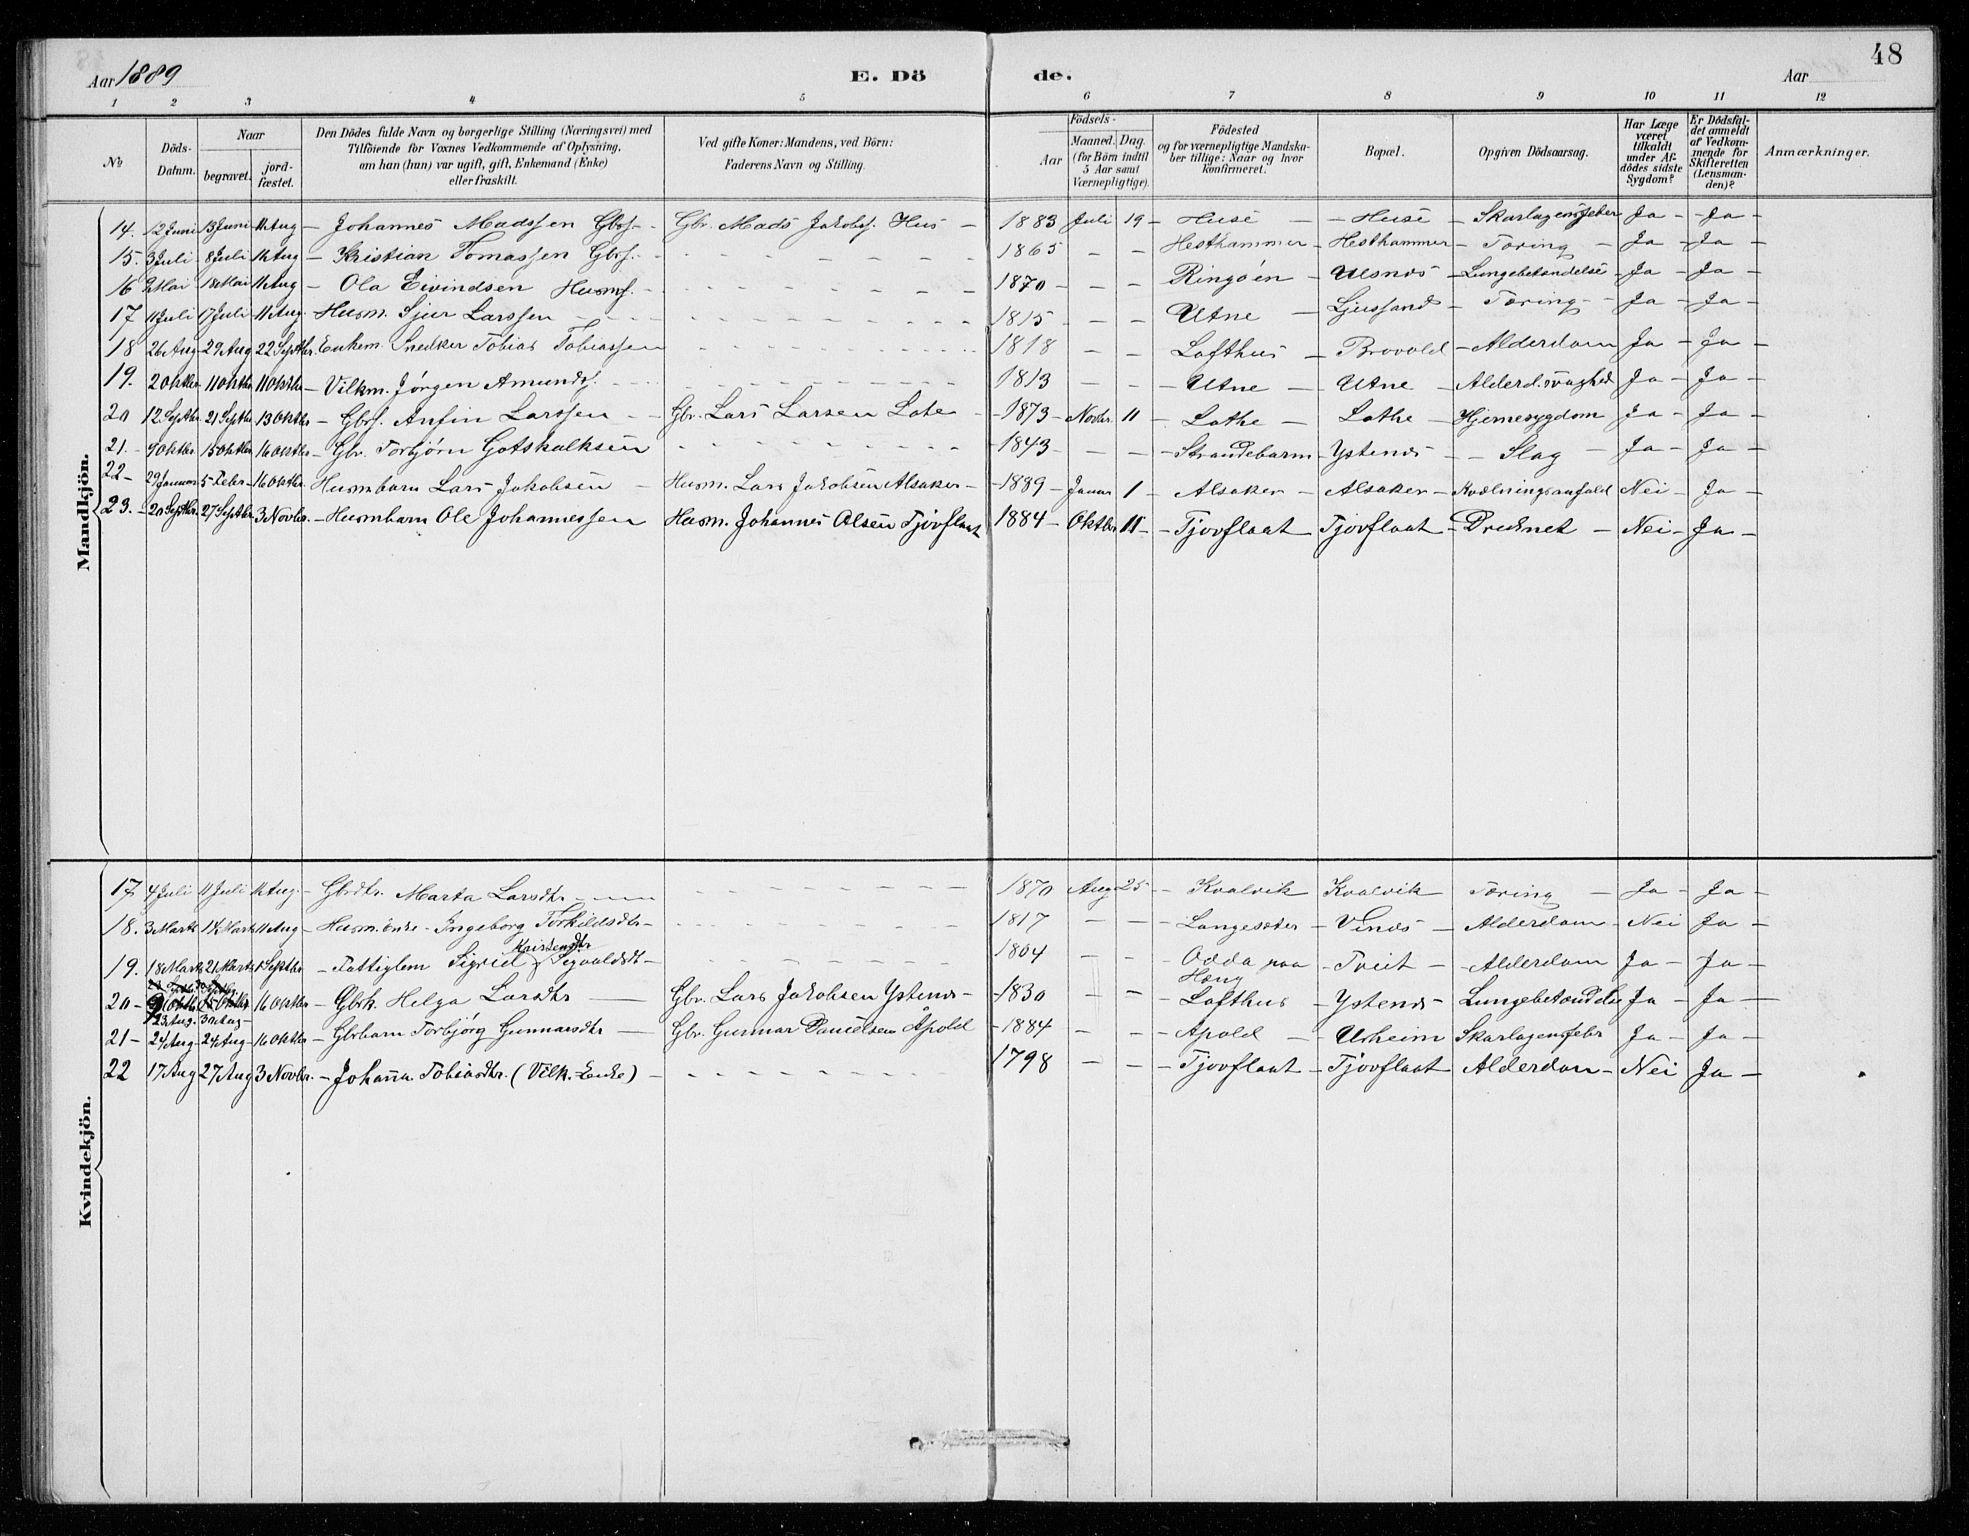 48
Aar 1889 E. Dö de. Aar
1 2 3 4 5 6 7 8 9 10 11 12
No
Döds-Datum.
Naar
begravet. jord-fæstet.
Den Dödes fulde Navn og borgerlige Stilling (Næringsvei) med
Tilföiende for Voxnes Vedkommende af Oplysning,
om han (hun) var ugift, gift, Enkemand (Enke)
eller fraskilt.
Ved gifte Koner: Mandens, ved Börn:
Faderens Navn og Stilling.
Födsels-
Aar Maaned. Dag.
(for Börn indtil
5 Aar samt
Værnepligtige).
Födested
og for værnepligtige Mandska-
ber tillige: Naar og hvor
konfirmeret.
Bopæl.
Opgiven Dödsaarsag.
Har Læge
været
tilkaldt
under Af-
dödes sidste
Sygdom?
Er Dödsfal-
det anmeldt
af Vedkom-
mende for
Skifteretten
(Lensman-
den)?
Anmærkninger.
Mandkjön.
14. 12 Juni 13 Juni 11 Aug – Johannes Madssen Gbrs. – Gbr. Mads Jakobs. Hus – 1883 Juli 19 – Huse – Huse – Skarlagensfeber Ja – Ja –
15 3 Juli 8 Juli 11 Aug – Kristian Tomassen Gbrs. – 1865 – – Hesthammer – Hesthammer – Tæring – Ja – Ja –
16 2 Mai 18 Mai 11 Aug – Ola Eivindsen Husms. – 1870 – – Ringöen – Ulsnes – Lungebetendelse – Ja – Ja
17 11 Juli 17 Juli 11 Aug. Husm. Sjur Larssen – 1815 – – Utne – Ljussand – Tæring – Ja – Ja –
18 26 Aug 29 Aug 22 Septbr. Enkem. Snedker Tobias Tobiassen – 1818 – – Lofthus – Brovold – Alderdom Ja – Ja –
19. 2 Oktbr. 11 Oktbr 11 Oktbr – Vilkm. Jørgen Amunds. – 1813 – – Utne – Utne – Alderd.svaghed Ja – Ja –
20 12 Septbr. 21 Septbr 13 Oktbr – Gbrs. Anfin Larssen – Gbr. Lars Larsen Lote – 1873 – Novbr. 11 – Lothe – Lothe – Hjernesygdom Ja – Ja –
21. 9 Oktbr. 15 Oktbr. 16 Oktbr. – Gbr. Torbjørn Gotskalksen – 1843 – – Strandebarm – Ystenes – Slag – Ja – Ja –
22 – 29 Januar 5 Febr. 16 Oktbr. Husmbarn Lars Jakobsen – Husm. Lars Jakobsen Alsaker – 1889 – Januar 1 – Alsaker – Alsaker – Kvælningsanfald Nei – Ja –
23. – 20 Septbr. 27 Septbr 3 Novbr. – Husmbarn Ole Johannessen Husm. Johannes Olsen Tjovflaat 1884 – Oktbr. 11 – Tjovflaat Tjovflaat – Druknet – Nei – Ja –
Kvindekjön.
17. 4 Juli 11 Juli 11 Aug. – Gbrdtr. Marta Larsdtr – 1870 Aug 25 – Kvalvik Kvalvik Tæring – Ja – Ja –
18. 3 Marts 14 Marts 11 Aug – Husm.enke – Ingeborg Torkildsdtr – 1817 – – Langesæter – Vines – Alderdom – Nei Ja –
Kristensdtr
19. 18 Marts 21 Marts 1 Septbr – Fattiglem Sigrid Sjovaldsdtr – 1804 – – Odda paa – Tveit – Alderdom Ja – Ja –
Haug
20 – 9 Oktbr. 15 Oktbr. 16 Oktbr – Gbrk. Helga Larsdtr Gbr. Lars Jakobsen Ystenes – 1830 – – Lofthus – Ystenes – Lungebetændelse Ja – Ja –
23 Aug. 30 Aug
21 – 24 Aug 24 Aug – 16 Oktbr – Gbrbarn Torbjörg Gunnarsdtr – Gbr. Gunnar Danielsen Apold – 1884 – – Apold – Urheim Skarlagensfebr Ja – Ja –
22 17 Aug 27 Aug 3 Novbr. – Johanna Tobiasdtr. (Vilk. Enke) – 1798 – – Tjovflaat – Tjovflaat Alderdom – Nei Ja –